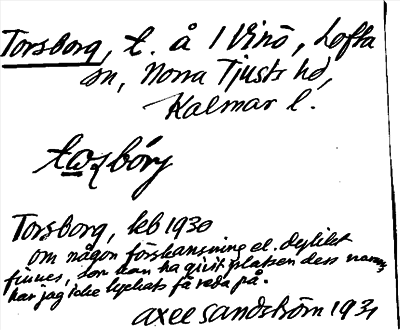 Torsborg, t. å 1 Vinö, Lofta
sn, Norra Tjusts hd,
Kalmar l.
Torsborg, keb 1930
om någon förskansning el. dylikt
finnes, som kan ha givit platsen dess namn,
har jag icke lyckats få reda på.
Axel Sandström 1931